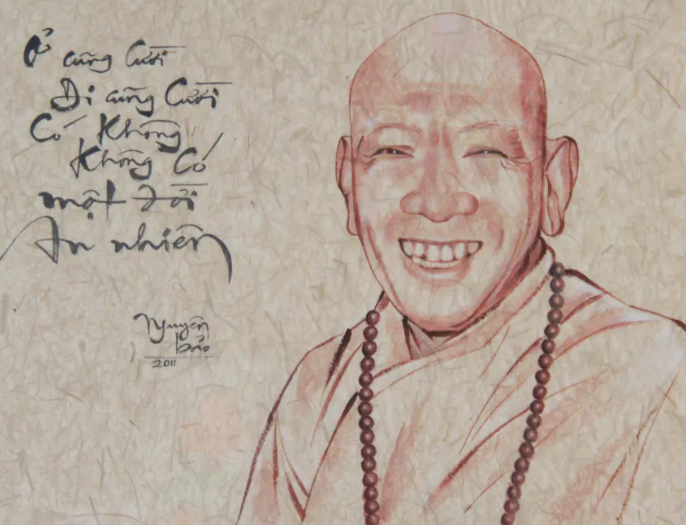 Ở cũng Cười
Đi cũng Cười
Có Không
Không Có
một đời
An nhiên
Nguyên
bảo
2011